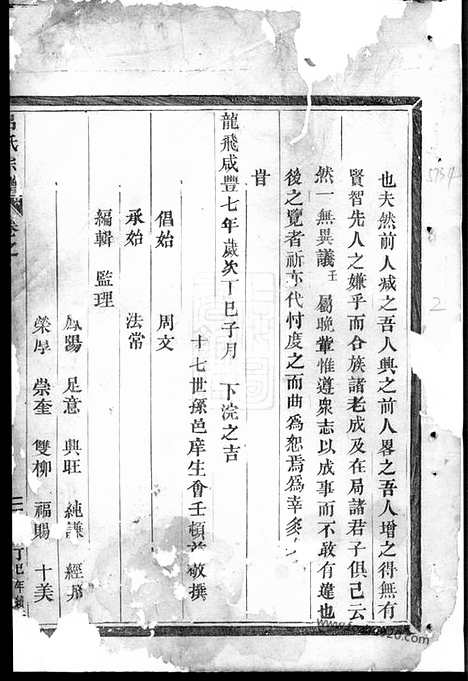 也夫然前人減之吾人興之前人畧之吾人增之得無有
賢智先人之嫌乎而合族諸老成及在局諸君子俱己云
然一無異議王屬晚輩惟遵眾志以成事而不敢有違也
後之覽者祈亦代忖度之而曲為恕焉為幸矣
旹
龍飛咸豐七年歲次丁巳子月 下浣之吉
十七世孫邑庠生會壬頓首敬撰
倡始 周文
承始 法常
編輯 監理
鳳陽 足意 興旺 純謙 經
榮厚 崇奎 雙柳 福賜 十美
氏宗譜 卷之一
丁巳年
5737
2